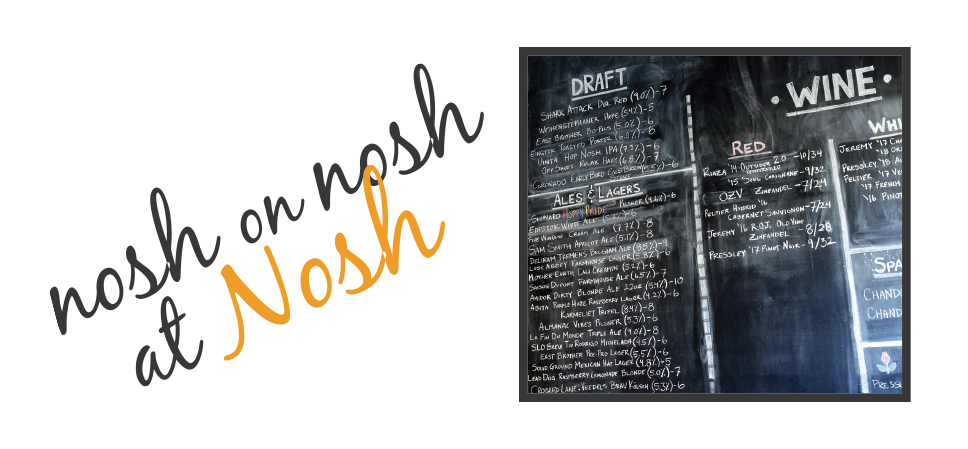 nosh on nosh
at Nosh
DRAFT
SHARK ATTACK DBL RED (9.0%)-7
WEIHENSTEPHANER HEFE (5.4%)-5
EAST BROTHER BO PILS (5.0%)-6
EINSTOK TOASTED PORTER (6.0%)-6
UNITA HOP NOSH IPA (7.3%)-6
OFF SHORE RELAX HAZY (6.8%)-7
CORONADO EARLY BIRD COLD BREW
ALES & LAGERS
SUDWERK HOPPY PRIDE PILSNER (4.6%)-6
EINSTOK WHITE ALE (5.2%)-6
CREAM ALE (7.7%)-8
SAM SMITH APRICOT ALE (5.1%)-8
DELIRIUM TREMENS BELGIAN ALE (8.5%)-9
LOST ABBEY FARMHOUSE LAGER (5.8%)-8
MOTHER EARTH CALI CREAMIN (5.2%)-6
SAISON DUPONT FARMHOUSE ALE (6.5%)-7
DIRTY BLONDE ALE 22oz (5.4%)-10
ABITA PURPLE HAZE RASPBERRY LAGER (4.2%)-6
KARMELIET TRIPEL (8.4%)-8
ALMANAC VIBES PILSNER (5.3%)-6
LA FIN DU MONDE TRIPLE ALE (9.0%)-8
SLO BREW TIO RODRIGO MICHELADA (4.5%)-6
EAST BROTHER PRE-PRO LAGER (5.5%)-6
SOLID GROUND MEXICAN HAT LAGER (4.8%)-5
LEAD DOG RASPBERRY LEMONADE BLONDE (5.0%)-7
CROOKED LANE-VEEDELS BRAU KÖLSCH (5.3%)-6
• WINE •
RED
RINZA '14 OUTSIDER 2.0 -10/34
'15 SOUL CARIGNANE-9/32
OZV ZINFANDEL -7/24
PELTIER HYBRID '16
CABERNET SAUVIGNON-7/24
JEREMY '16 R.O.J. OLD VINE
ZINFANDEL -8/28
PRESSLEY '17 PINOT NOIR-9/32
WHI
JEREMY '17 CH
'18
PRESSLEY '18
PELTIER '17
'17 FRENCH
'16 PINOT
SPA
CHAND
CHAND
PRESS